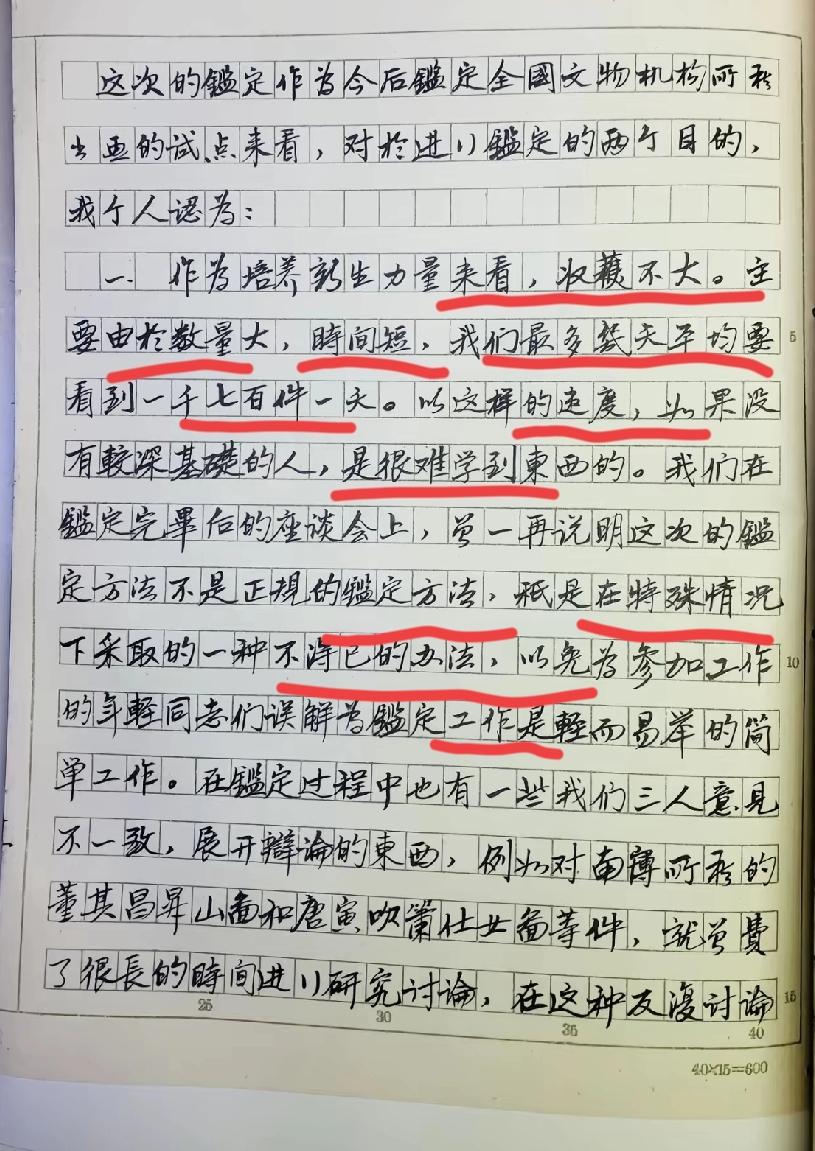 这次的鑑定作为今后鑑定全國文物机构所藏
书画的试点来看，对於进行鑑定的两个目的，
我个人認为：
一、作为培养新生力量来看，收穫不大。主
要由於数量大，時间短，我们最多幾天平均要
看到一千七百件一天。以这样的速度，如果没
有較深基礎的人，是很难学到東西的。我们在
鑑定完畢后的座谈会上，曾一再说明这次的鑑
定方法不是正规的鑑定方法，祗是在特殊情况
下采取的一种不得已的办法，以免为参加工作
的年輕同志们误解为鑑定工作是輕而易举的简
单工作。在鑑定过程中也有一些我们三人意見
不一致，展开辯論的東西，例如对南博所藏的
董其昌昇山畵和唐寅吹簫仕女畵等件，就曾費
了很長的時间进行研究讨論，在这种反復讨論
5
10
15
25
30
35
40
40×15=600